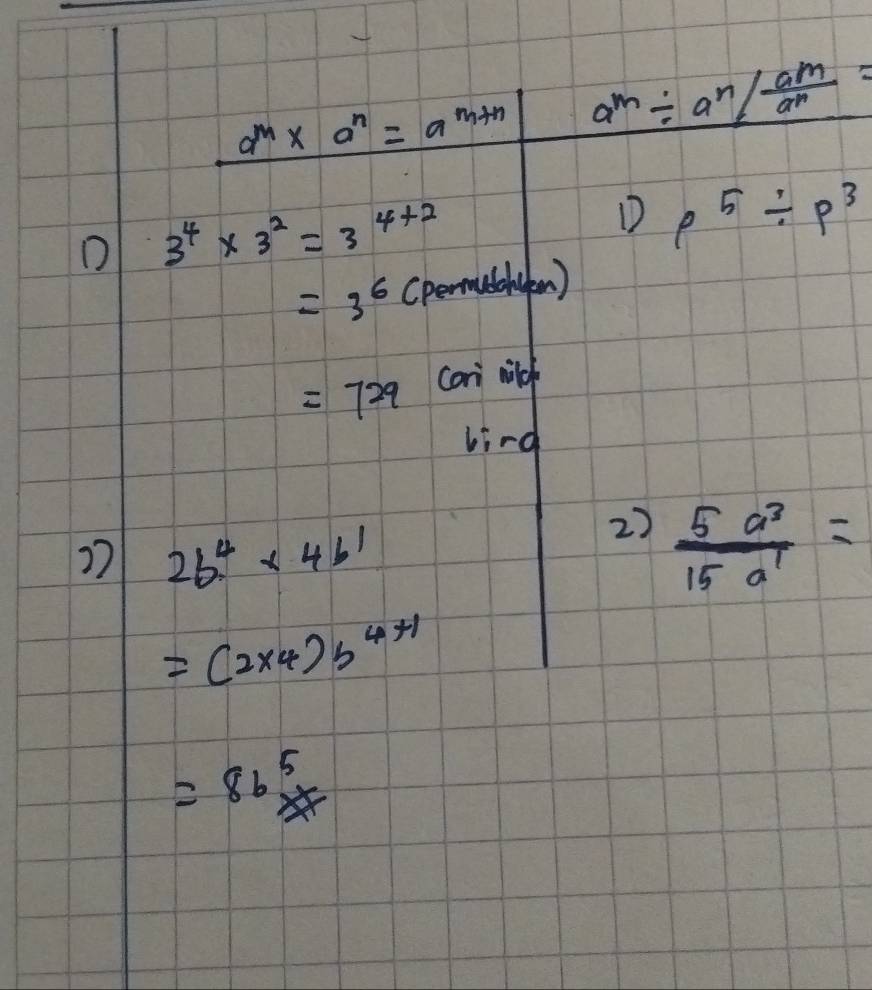 aᵐ × aⁿ = aᵐ⁺ⁿ
1) 3⁴ × 3² = 3⁴⁺²
= 3⁶ (permudahkan)
= 729 Cari nilai
2) 2b⁴ × 4b¹
= (2×4)b⁴⁺¹
= 8b⁵
aᵐ ÷ aⁿ / aᵐ/aⁿ =
1) p⁵ ÷ p³
2) 5a³/15a¹ =